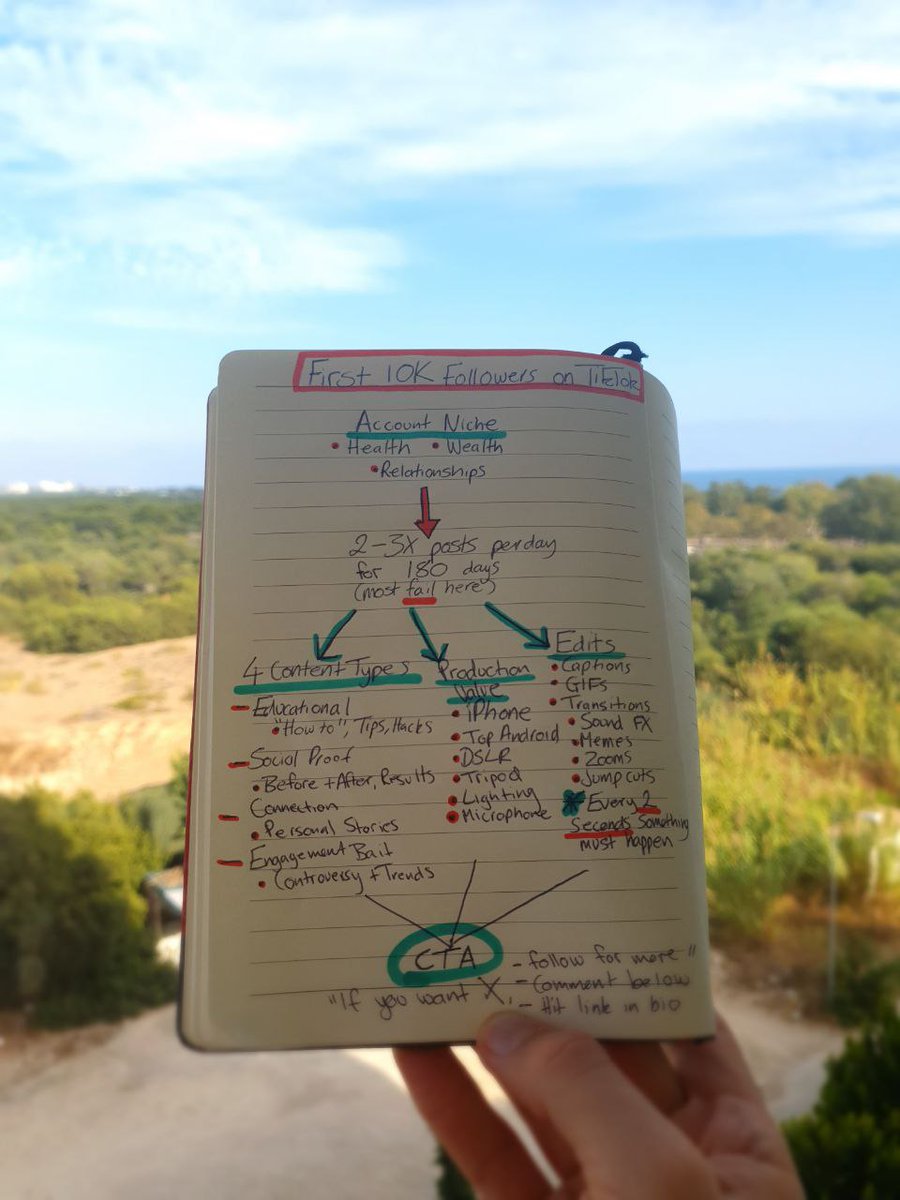 First 10K Followers on TikTok
Account Niche
• Health • Wealth
• Relationships
2-3X posts per day
for 180 days
(most fail here)
4 Content Types
- Educational
• "How to", Tips, Hacks
- Social Proof
• Before + After, Results
- Connection
• Personal Stories
- Engagement Bait
• Controversy + Trends
Production
Value
• iPhone
• Top Android
• DSLR
• Tripod
• Lighting
• Microphone
Edits
• Captions
• GIFs
• Transitions
• Sound FX
• Memes
• Zooms
• Jump cuts
* Every 2
Seconds Something
must happen
CTA
"If you want X,
- follow for more"
- Comment below
- Hit link in bio